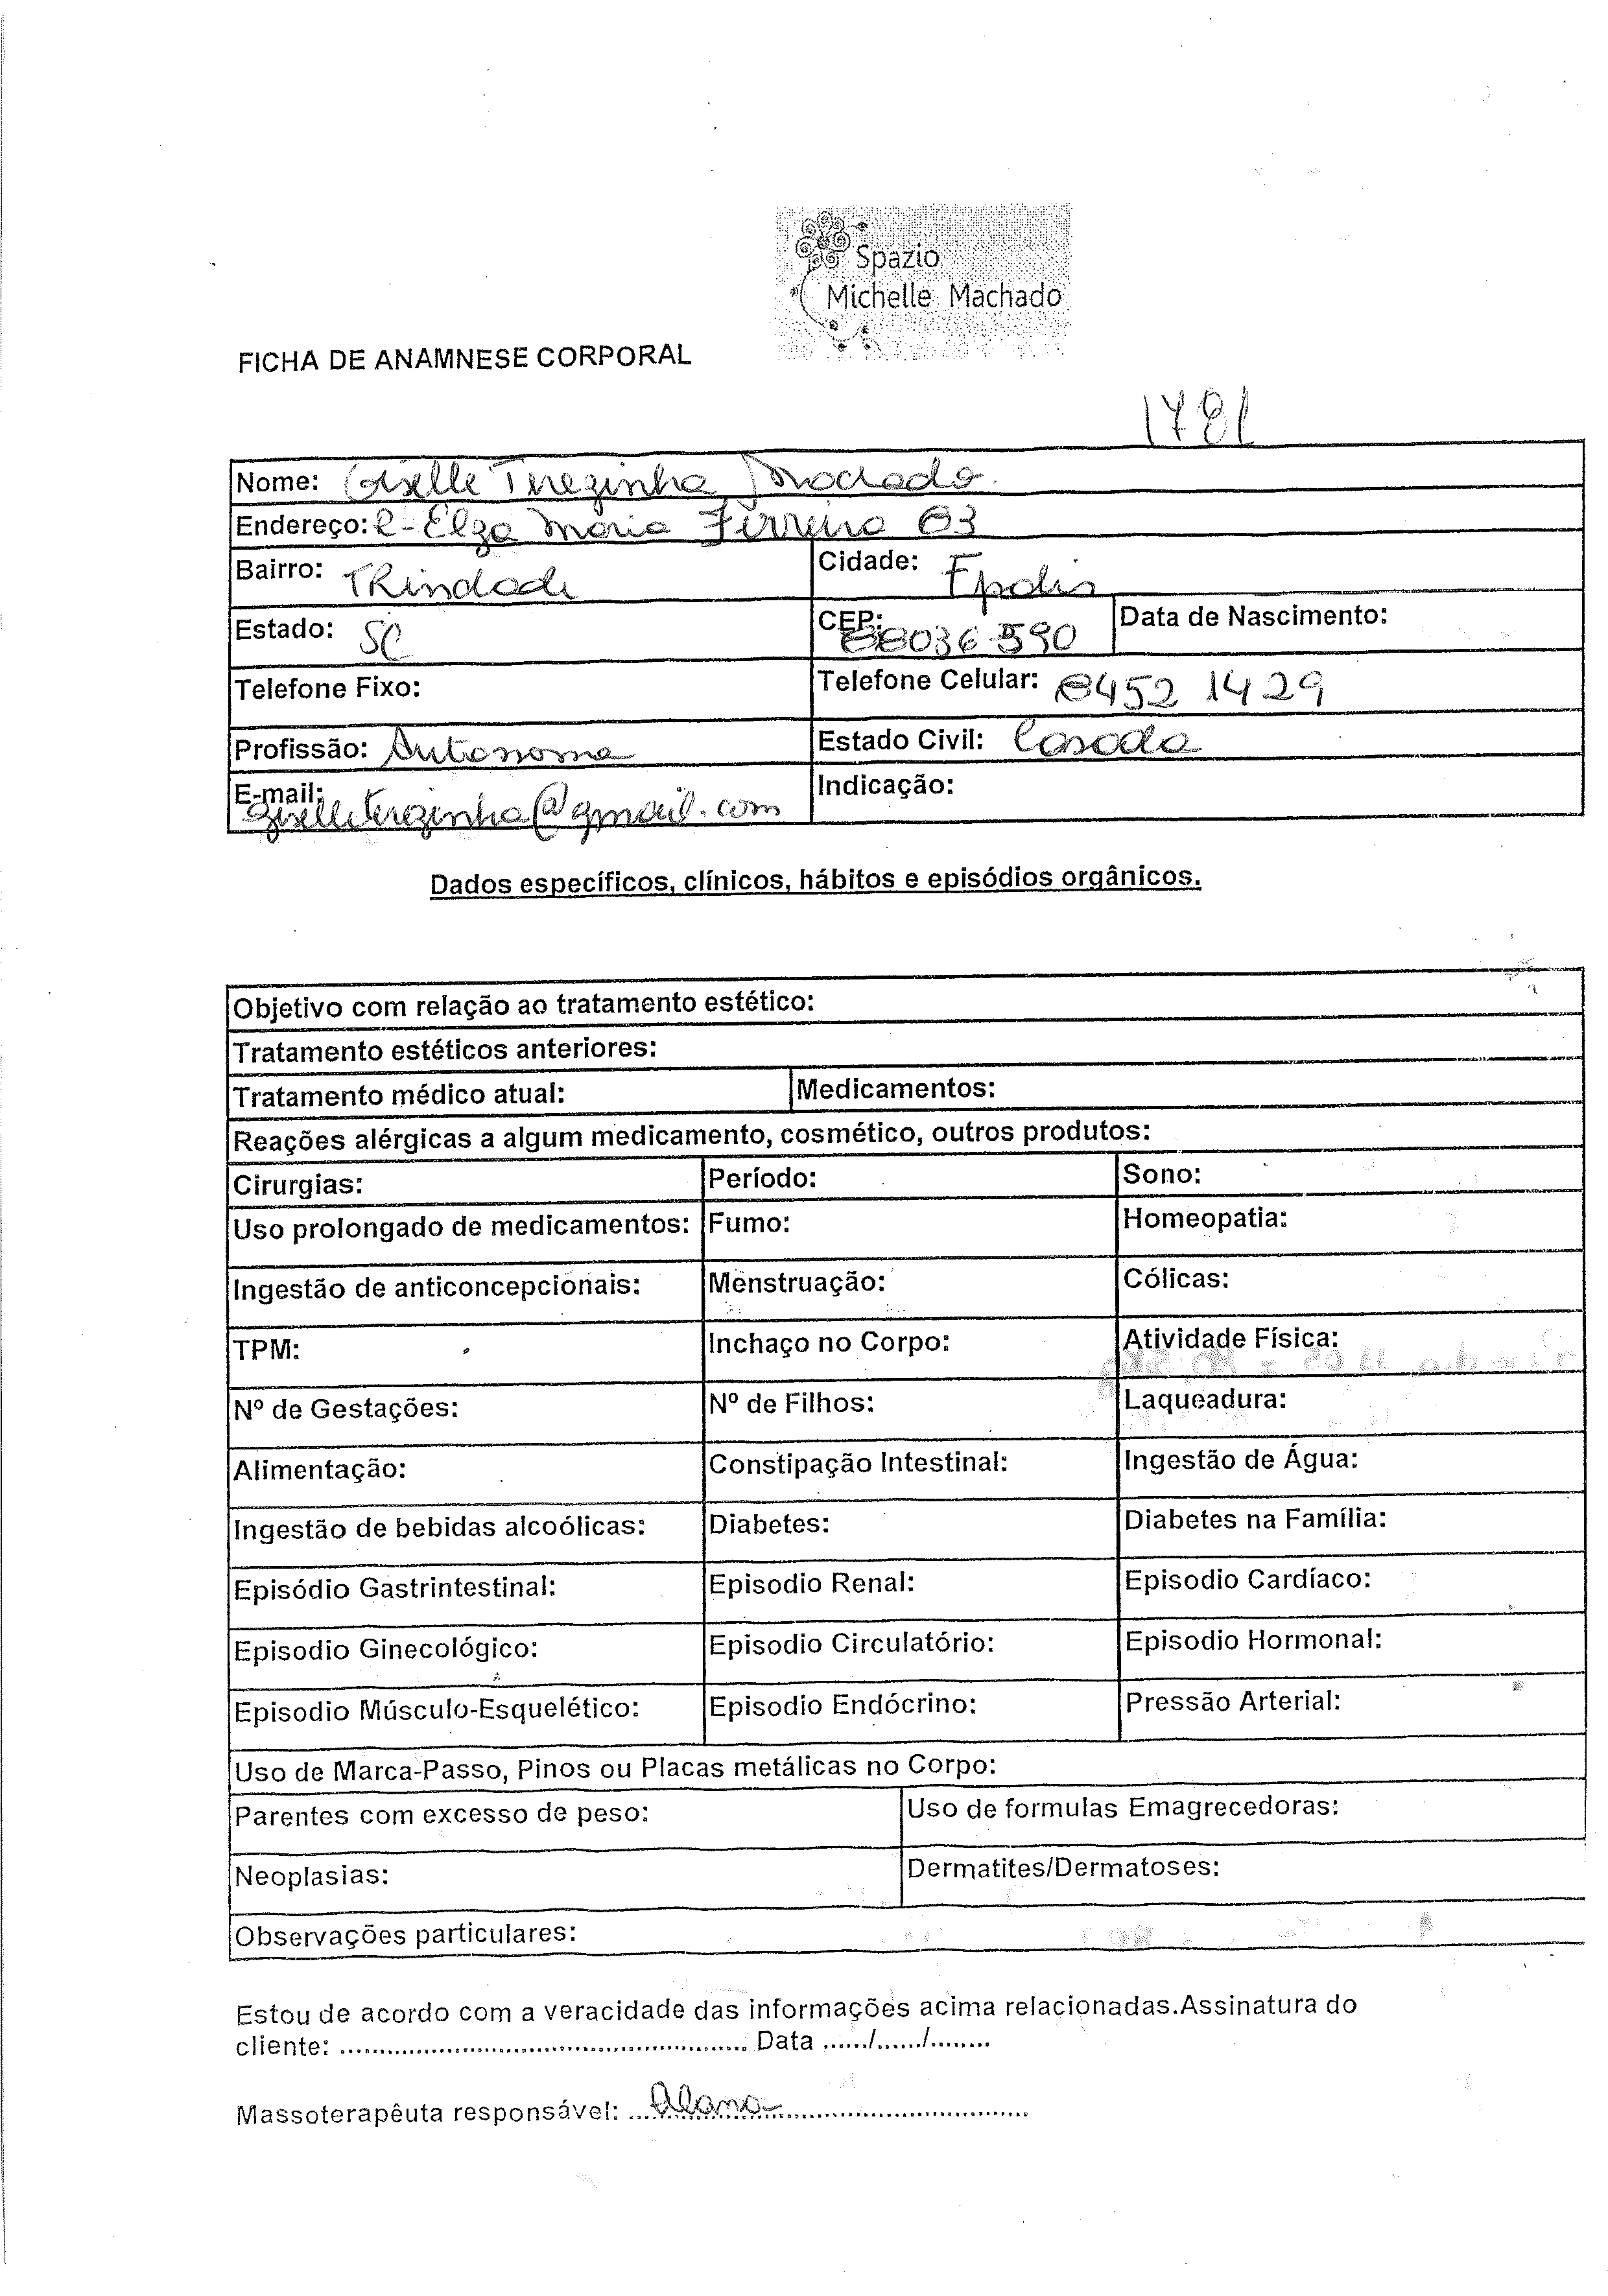 Spazio
Michelle Machado
FICHA DE ANAMNESE CORPORAL
1781
Nome: Giselle Terezinha Machado
Endereço: R- Elza Maria Ferreira 03
Bairro: Trindade Cidade: Fpolis
Estado: SC CEP: 88036 590 Data de Nascimento:
Telefone Fixo: Telefone Celular: 8452 1429
Profissão: Autonoma Estado Civil: Casada
E-mail: giselleterezinha@gmail.com Indicação:
Dados específicos, clínicos, hábitos e episódios orgânicos.
Objetivo com relação ao tratamento estético:
Tratamento estéticos anteriores:
Tratamento médico atual: Medicamentos:
Reações alérgicas a algum medicamento, cosmético, outros produtos:
Cirurgias: Período: Sono:
Uso prolongado de medicamentos: Fumo: Homeopatia:
Ingestão de anticoncepcionais: Menstruação: Cólicas:
TPM: Inchaço no Corpo: Atividade Física:
Nº de Gestações: Nº de Filhos: Laqueadura:
Alimentação: Constipação Intestinal: Ingestão de Água:
Ingestão de bebidas alcoólicas: Diabetes: Diabetes na Família:
Episódio Gastrintestinal: Episodio Renal: Episodio Cardíaco:
Episodio Ginecológico: Episodio Circulatório: Episodio Hormonal:
Episodio Músculo-Esquelético: Episodio Endócrino: Pressão Arterial:
Uso de Marca-Passo, Pinos ou Placas metálicas no Corpo:
Parentes com excesso de peso: Uso de formulas Emagrecedoras:
Neoplasias: Dermatites/Dermatoses:
Observações particulares:
Estou de acordo com a veracidade das informações acima relacionadas.Assinatura do
cliente: .................................................. Data ....../....../........
Massoterapêuta responsável: ...Alana..................................